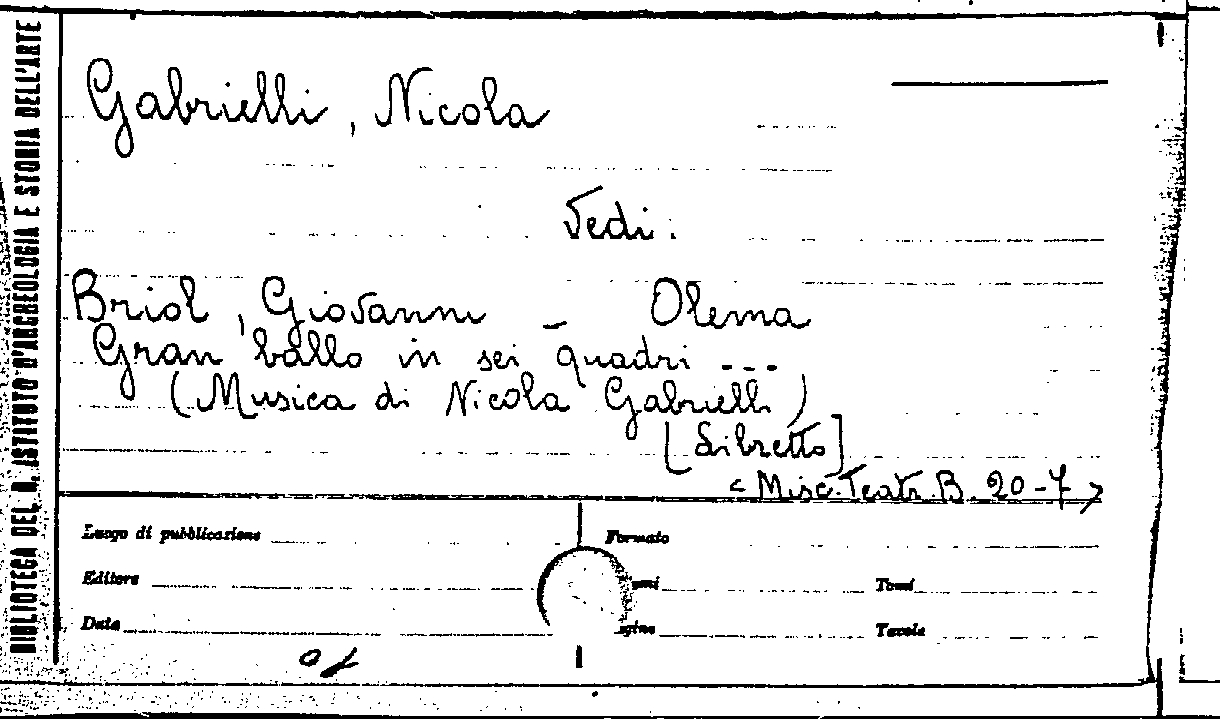 BIBLIOTECA DEL R. ISTITUTO D'ARCHEOLOGIA E STORIA DELL'ARTE
Gabrielli, Nicola
Vedi:
Briol, Giovanni – Olema
Gran ballo in sei quadri ...
(Musica di Nicola Gabrielli)
[Libretto]
< Misc. Teatr. B. 20-7 >
Luogo di pubblicazione Formato
Editore Tomi
Data Tavole